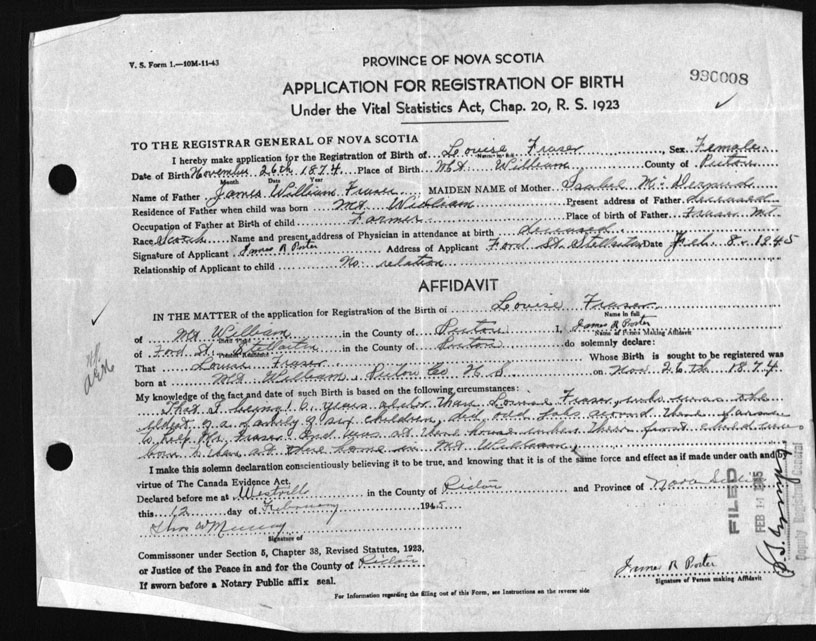 V. S. Form 1.—10M-11-43
PROVINCE OF NOVA SCOTIA
990008
APPLICATION FOR REGISTRATION OF BIRTH
Under the Vital Statistics Act, Chap. 20, R. S. 1923
TO THE REGISTRAR GENERAL OF NOVA SCOTIA
I hereby make application for the Registration of Birth of Louise Fraser, Sex Female
Name in full
Date of Birth November 26th 1874 Place of Birth Mt William County of Pictou
Month Date Year
Name of Father James William Fraser MAIDEN NAME of Mother Isabel
Residence of Father when child was born Mt William Present address of Father deceased
Occupation of Father at Birth of child Farmer Place of birth of Father Fraser Mt.
Race Scotch Name and present address of Physician in attendance at birth deceased
Signature of Applicant James R Porter Address of Applicant Ford St Stellarton Date Feb. 8. 1945
Relationship of Applicant to child No relation
AFFIDAVIT
IN THE MATTER of the application for Registration of the Birth of Louise Fraser
Name in full
of Mt William in the County of Pictou I, James R Porter
Name of Person Making Affidavit
of Ford St Stellarton in the County of Pictou do solemnly declare:
That Louise Fraser Whose Birth is sought to be registered was
born at Mt William, Pictou Co N S on Nov 26th 1874
My knowledge of the fact and date of such Birth is based on the following circumstances:
That I being 6 years older than Louise Fraser, who was the
oldest of a family of six children, did odd jobs around their farm
to help Mr Fraser. And was at their house when their first child was
born to them at their home in Mt William.
I make this solemn declaration conscientiously believing it to be true, and knowing that it is of the same force and effect as if made under oath and by
virtue of The Canada Evidence Act.
Declared before me at Westville in the County of Pictou and Province of Nova Scotia
this 12 day of February 1945
Signature of
Commissioner under Section 5, Chapter 38, Revised Statutes, 1923,
or Justice of the Peace in and for the County of Pictou
If sworn before a Notary Public affix seal.
James R Porter
Signature of Person making Affidavit
For Information regarding the filling out of this Form, see Instructions on the reverse side
FILED
FEB 14 1945
Deputy Registrar General